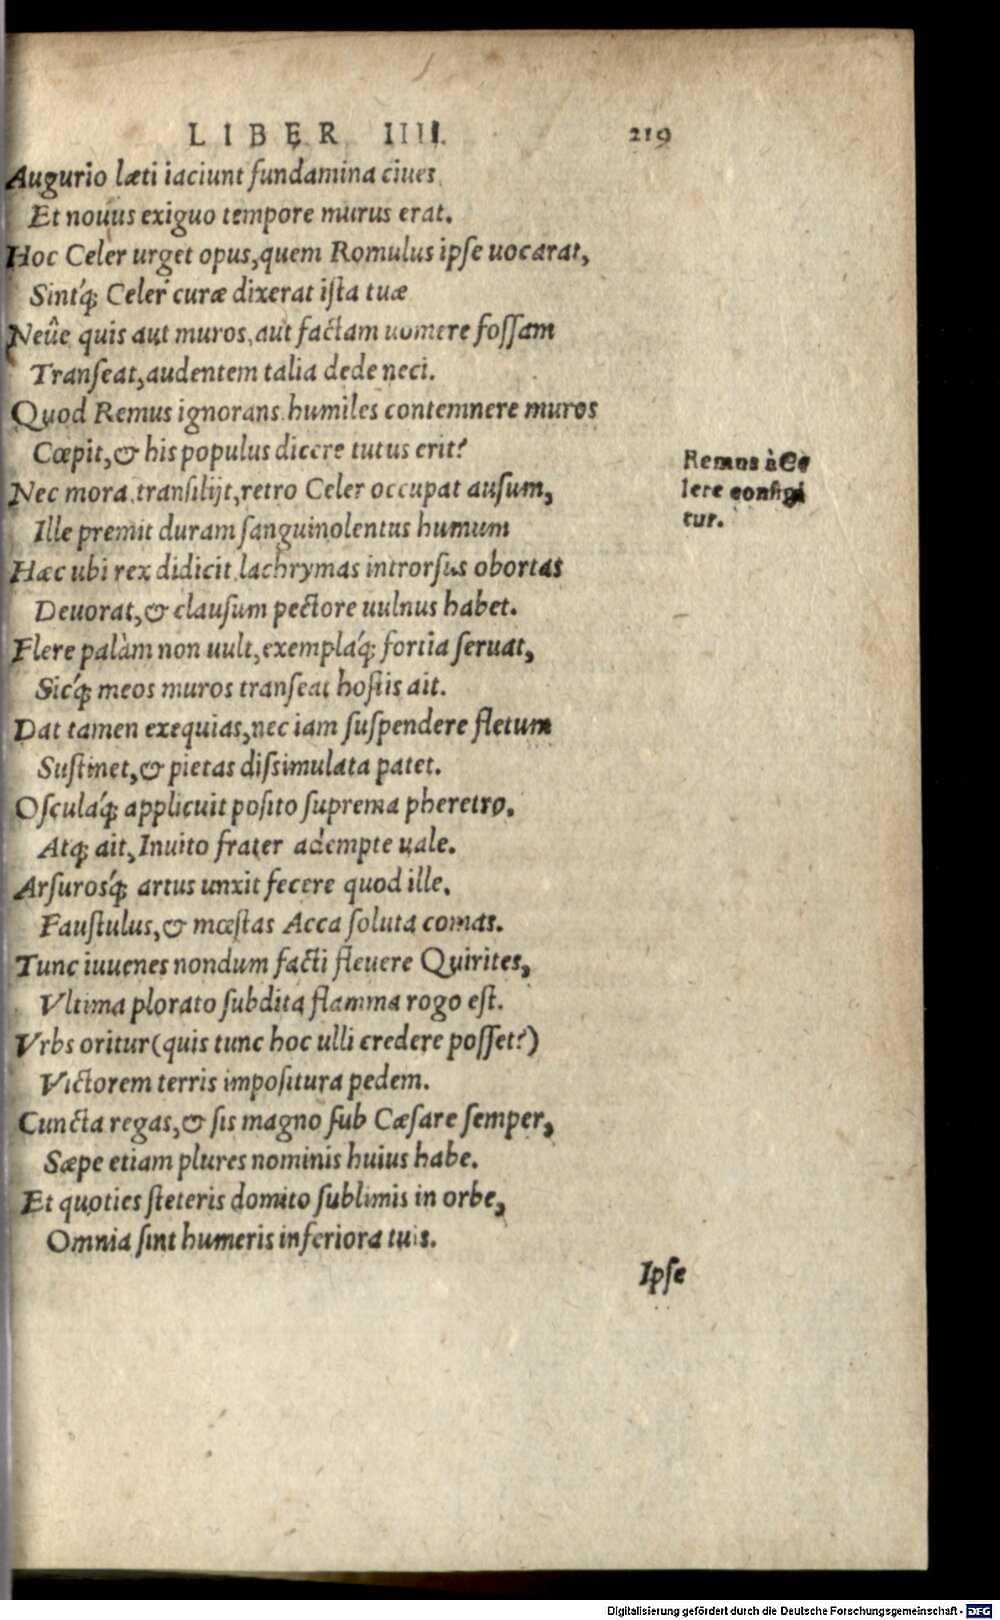 LIBER IIII. 219
Augurio læti iaciunt fundamina ciues,
Et nouus exiguo tempore murus erat.
Hoc Celer urget opus, quem Romulus ipſe uocarat,
Sintq́; Celer curæ dixerat iſta tuæ
Neûe quis aut muros, aut factam uomere foſſam
Tranſeat, audentem talia dede neci.
Quod Remus ignorans, humiles contemnere muros
Cœpit, & his populus dicere tutus erit?
Nec mora, tranſilijt, retro Celer occupat auſum,
Ille premit duram ſanguinolentus humum
Hæc ubi rex didicit, lachrymas introrſus obortas
Deuorat, & clauſum pectore uulnus habet.
Flere palàm non uult, exemplaq́; fortia ſeruat,
Sicq́; meos muros tranſeat hoſtis ait.
Dat tamen exequias, nec iam ſuſpendere fletum
Suſtinet, & pietas diſsimulata patet.
Oſculaq́; applicuit poſito ſuprema pheretro,
Atq; ait, Inuito frater adempte uale.
Arſurosq́; artus unxit fecere quod ille,
Fauſtulus, & mœſtas Acca ſoluta comas.
Tunc iuuenes nondum facti fleuere Quirites,
Vltima plorato ſubdita flamma rogo eſt.
Vrbs oritur (quis tunc hoc ulli credere poſſet?)
Victorem terris impoſitura pedem.
Cuncta regas, & ſis magno ſub Cæſare ſemper,
Sæpe etiam plures nominis huius habe.
Et quoties ſteteris domito ſublimis in orbe,
Omnia ſint humeris inferiora tuis.
Ipſe
Remus à Ce
lere configi
tur.
Digitalisierung gefördert durch die Deutsche Forschungsgemeinschaft - DFG